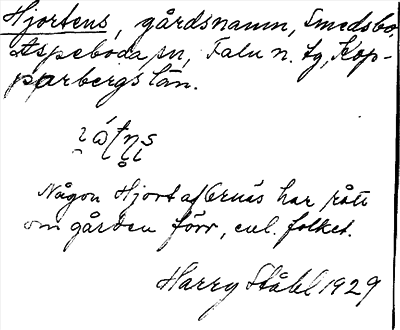 Hjortens, gårdsnamn, Smedsbo,
Aspeboda sn, Falu n. tg, Kop-
parbergs län.
Någon Hjort af Ornäs har rått
om gården förr, enl. folket.
Harry Ståhl 1929